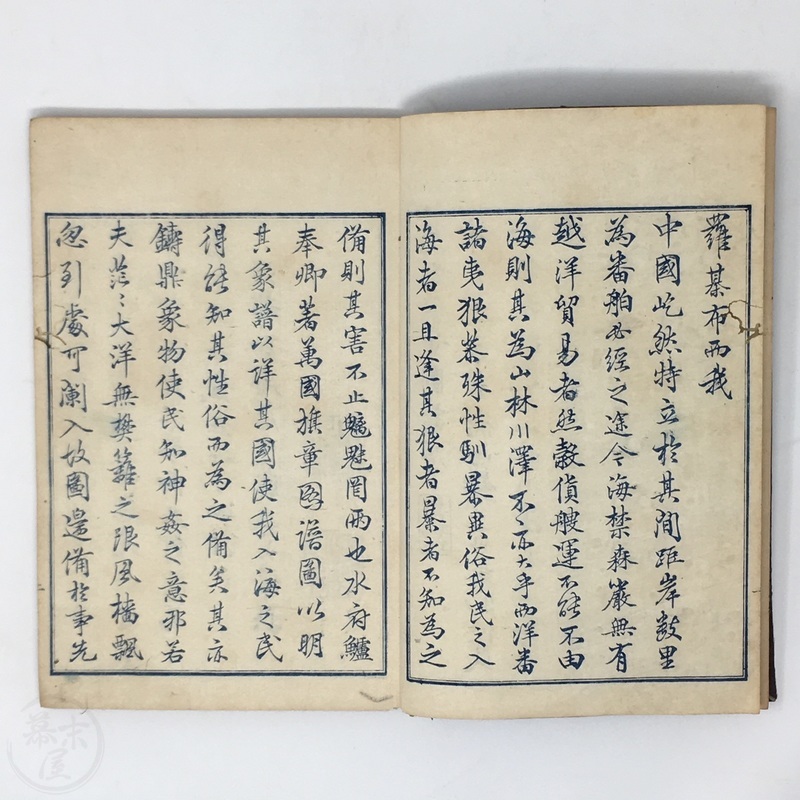 羅棊布而我
中國屹然特立於其間距岸數里
為番舶必經之途今海禁森嚴無有
越洋貿易者然穀貨艘運不能不由
海則其為山林川澤不〻亦大乎西洋番
諸夷狠恭殊性馴暴異俗我民之入
海者一旦逢其狠者暴者不知為之
備則其害不止魑魅罔兩也水府鱸
奉卿著萬國旗章圖譜圖以明
其象譜以詳其國使我入海之民
得能知其性俗而為之備矣其亦
鑄鼎象物使民知神姦之意邪若
夫茫〻大洋無樊籬之限風檣飄
忽到處可闌入故圖邊備於事先
幕末屋